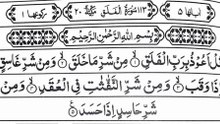 اٰيَاتُهَا ٥ ١١٣ سُوْرَةُ الْفَلَقِ مَكِّيَّةٌ ٢٠ رُكُوْعُهَا ١
بِسْمِ اللّٰهِ الرَّحْمٰنِ الرَّحِيْمِ
قُلْ اَعُوْذُ بِرَبِّ الْفَلَقِ ۙ وَمِنْ شَرِّ مَا خَلَقَ ۙ وَمِنْ شَرِّ غَاسِقٍ
اِذَا وَقَبَ ۙ وَمِنْ شَرِّ النَّفّٰثٰتِ فِى الْعُقَدِ ۙ وَمِنْ
شَرِّ حَاسِدٍ اِذَا حَسَدَ